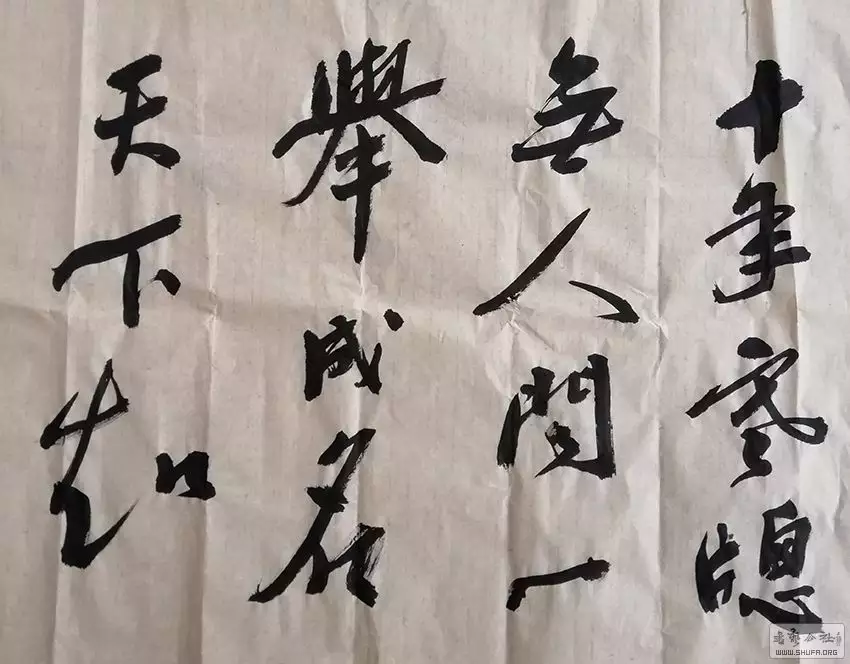 十年寒牕
無人問一
舉成名
天下知
老年公社
WWW.SHUFA.ORG